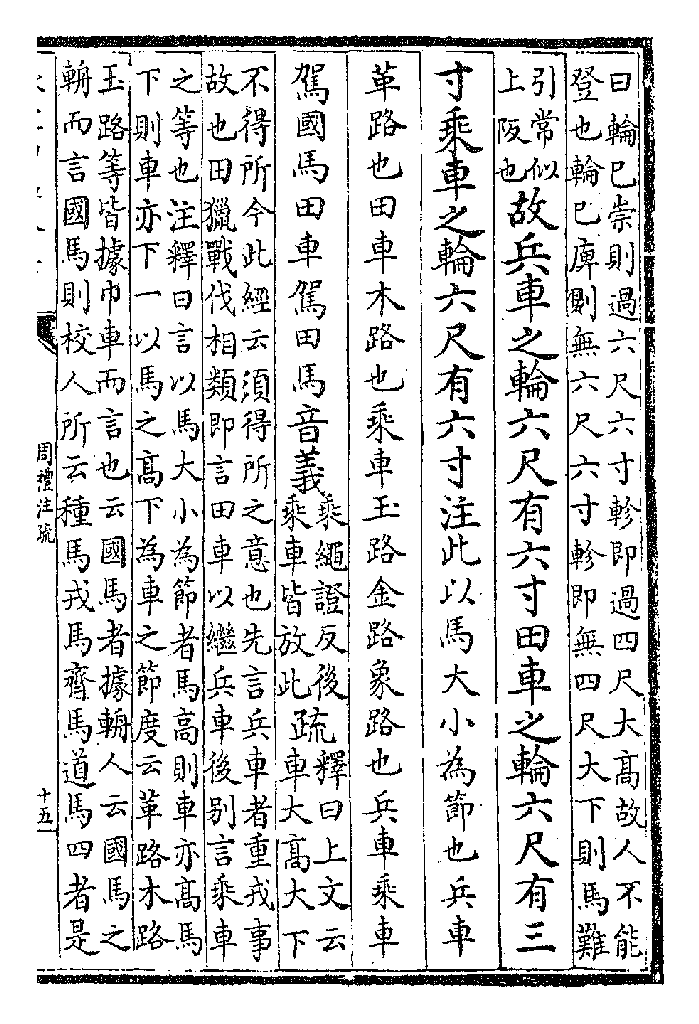 曰輪巳崇則過六尺六寸軫即過四尺大高故人不能
登也輪巳庳則無六尺六寸軫即無四尺大下則馬難
引常似
上阪也
故兵車之輪六尺有六寸田車之輪六尺有三
寸乘車之輪六尺有六寸注此以馬大小為節也兵車
革路也田車木路也乘車玉路金路象路也兵車乘車
駕國馬田車駕田馬音義
乘繩證反後
乘車皆放此
疏
釋曰上文云
車大高大下
不得所今此經云須得所之意也先言兵車者重戎事
故也田獵戰伐相類即言田車以繼兵車後別言乘車
之等也注釋曰言以馬大小為節者馬高則車亦高馬
下則車亦下一以馬之高下為車之節度云革路木路
玉路等皆據巾車而言也云國馬者據輈人云國馬之
輈而言國馬則校人所云種馬戎馬齊馬道馬四者是
周禮注疏
十五